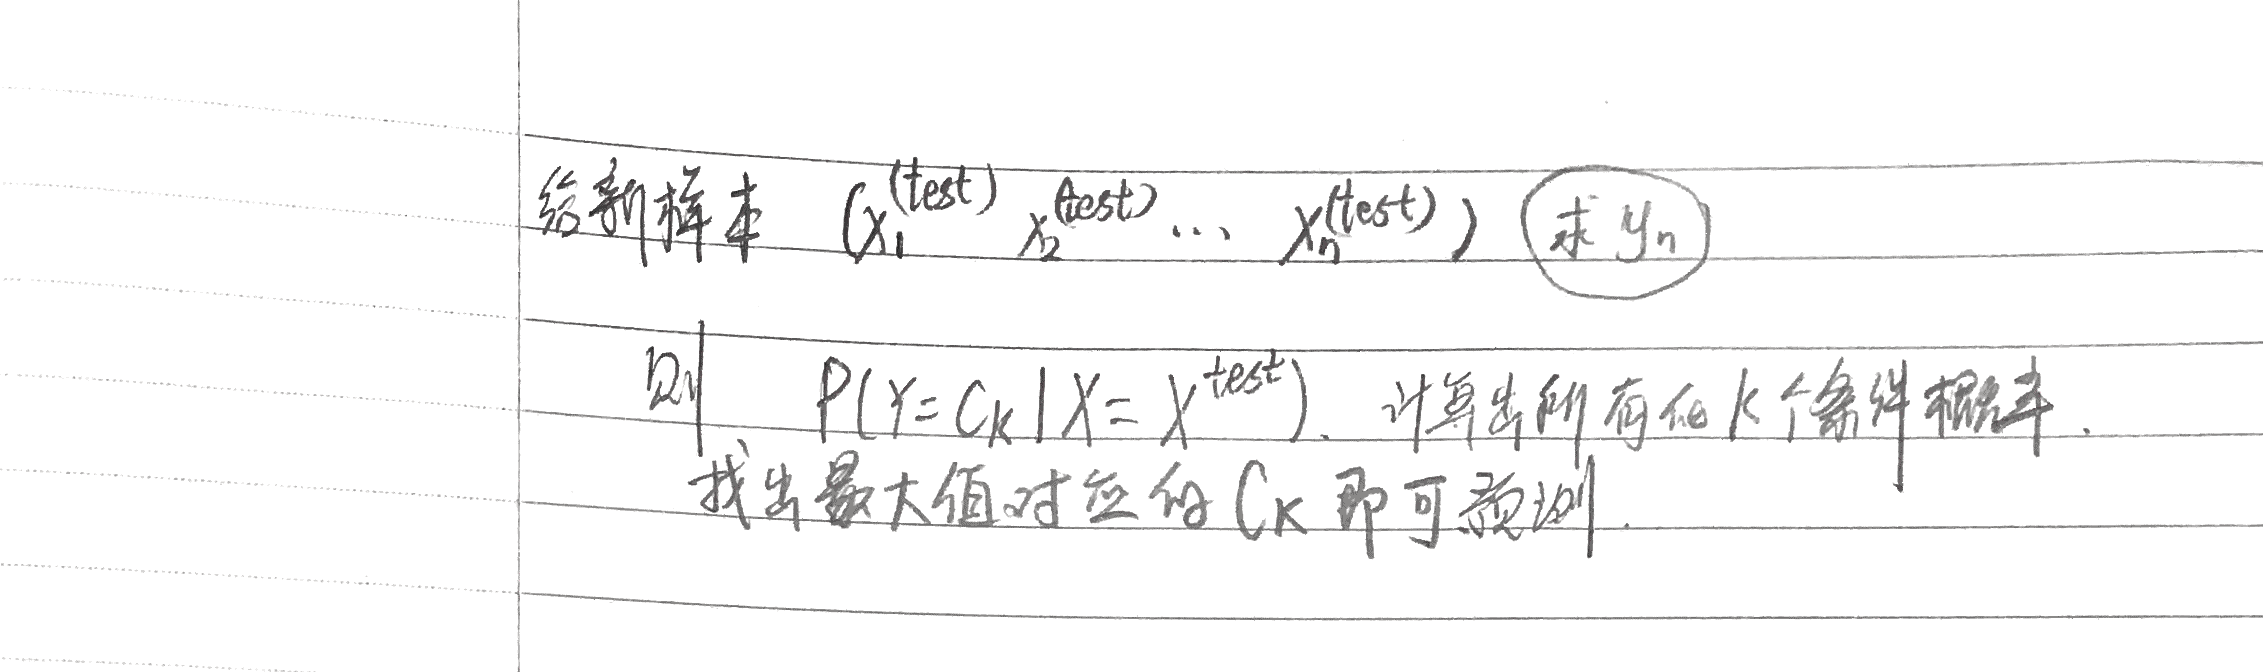 给新样本 (x₁^(test) x₂^(test) ... xₙ^(test)) 求 yₙ
则 P(Y=C_K | X= X^test). 计算出所有的 K 个条件概率.
找出最大值对应的 C_K 即可预测.